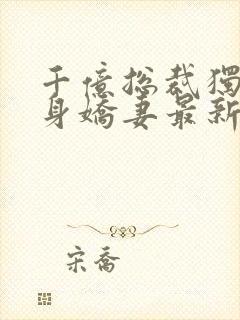 千億捴裁獨
身嬌妻最新
宋喬